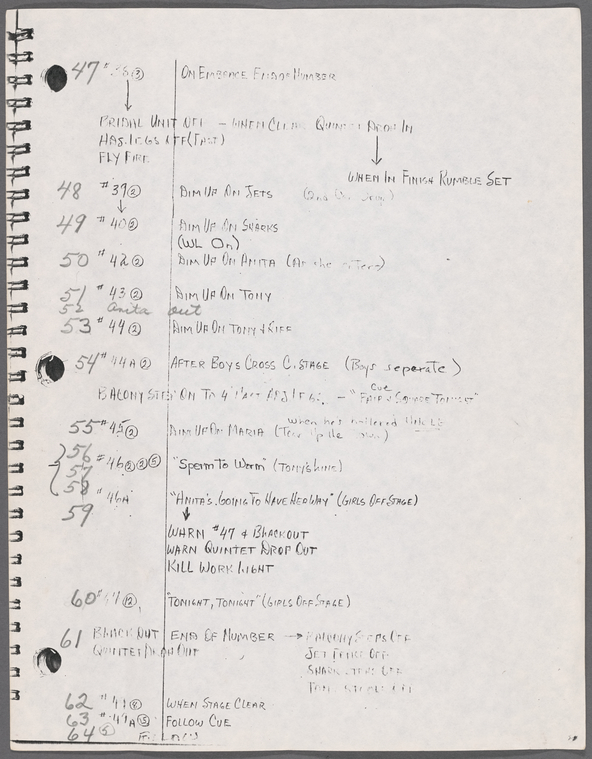 47 ③ ON EMBRACE END OF NUMBER
BRIDAL UNIT OFF - WHEN CLEAR QUINTET DROP IN
HAS. LEGS OFF (FAST)
FLY FIRE
WHEN IN FINISH RUMBLE SET
48 #39② DIM UP ON JETS
49 #40② DIM UP ON SHARKS
(WL ON)
50 #42② DIM UP ON ANITA
51 #43② DIM UP ON TONY
52 Anita out
53 #44② DIM UP ON TONY & RIFF
54 #44A② AFTER BOYS CROSS C. STAGE (Boys seperate)
BALCONY STEP ON TO 4
Cue
- "FAIR & SQUARE TONIGHT"
when he's
55 #45② DIM UP ON MARIA
56
57 #46②②⑤ "SPERM TO WORM" (TONY'S LINE)
58
#46A "ANITA'S GOING TO HAVE HER WAY" (GIRLS OFF STAGE)
59
WARN #47 & BLACKOUT
WARN QUINTET DROP OUT
KILL WORK LIGHT
60 #47⑫ "TONIGHT, TONIGHT" (GIRLS OFF STAGE)
61 BLACK OUT END OF NUMBER → BALCONY STEPS OFF
QUINTET DROP OUT JET OFF
OFF
62 ④ WHEN STAGE CLEAR
63 ⑤ FOLLOW CUE
64 ⑤